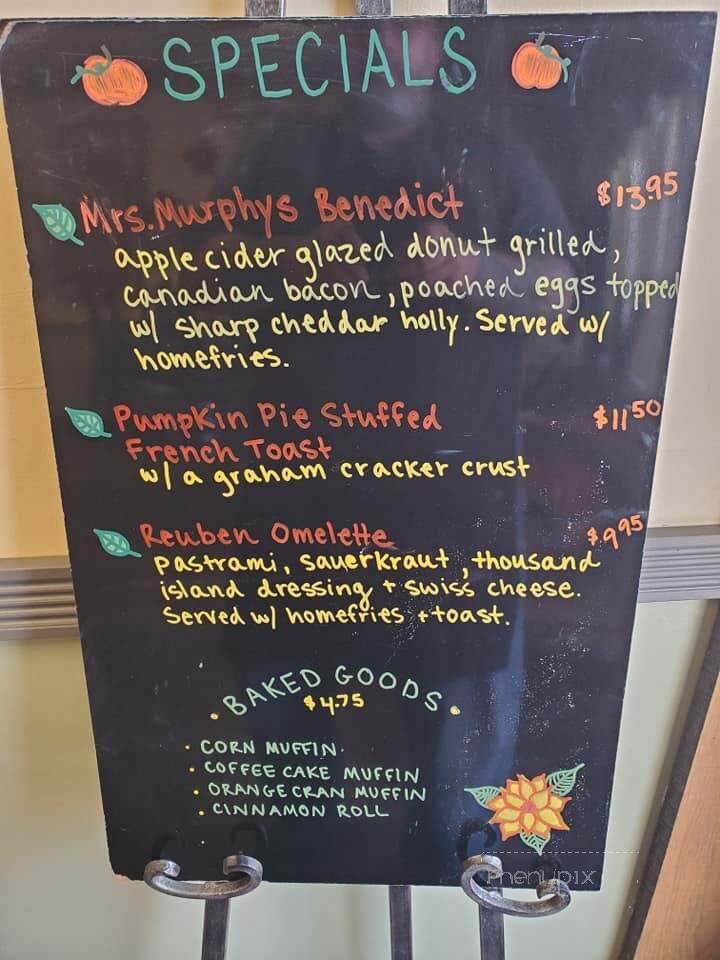 SPECIALS
Mrs.Murphys Benedict $13.95
apple cider glazed donut grilled,
canadian bacon, poached eggs topped
w/ sharp cheddar holly. Served w/
homefries.
Pumpkin Pie Stuffed $11.50
French Toast
w/ a graham cracker crust
Reuben Omelette $9.95
Pastrami, sauerkraut, thousand
island dressing + swiss cheese.
Served w/ homefries + toast.
• BAKED GOODS •
$4.75
• CORN MUFFIN
• COFFEE CAKE MUFFIN
• ORANGE CRAN MUFFIN
• CINNAMON ROLL
menupix